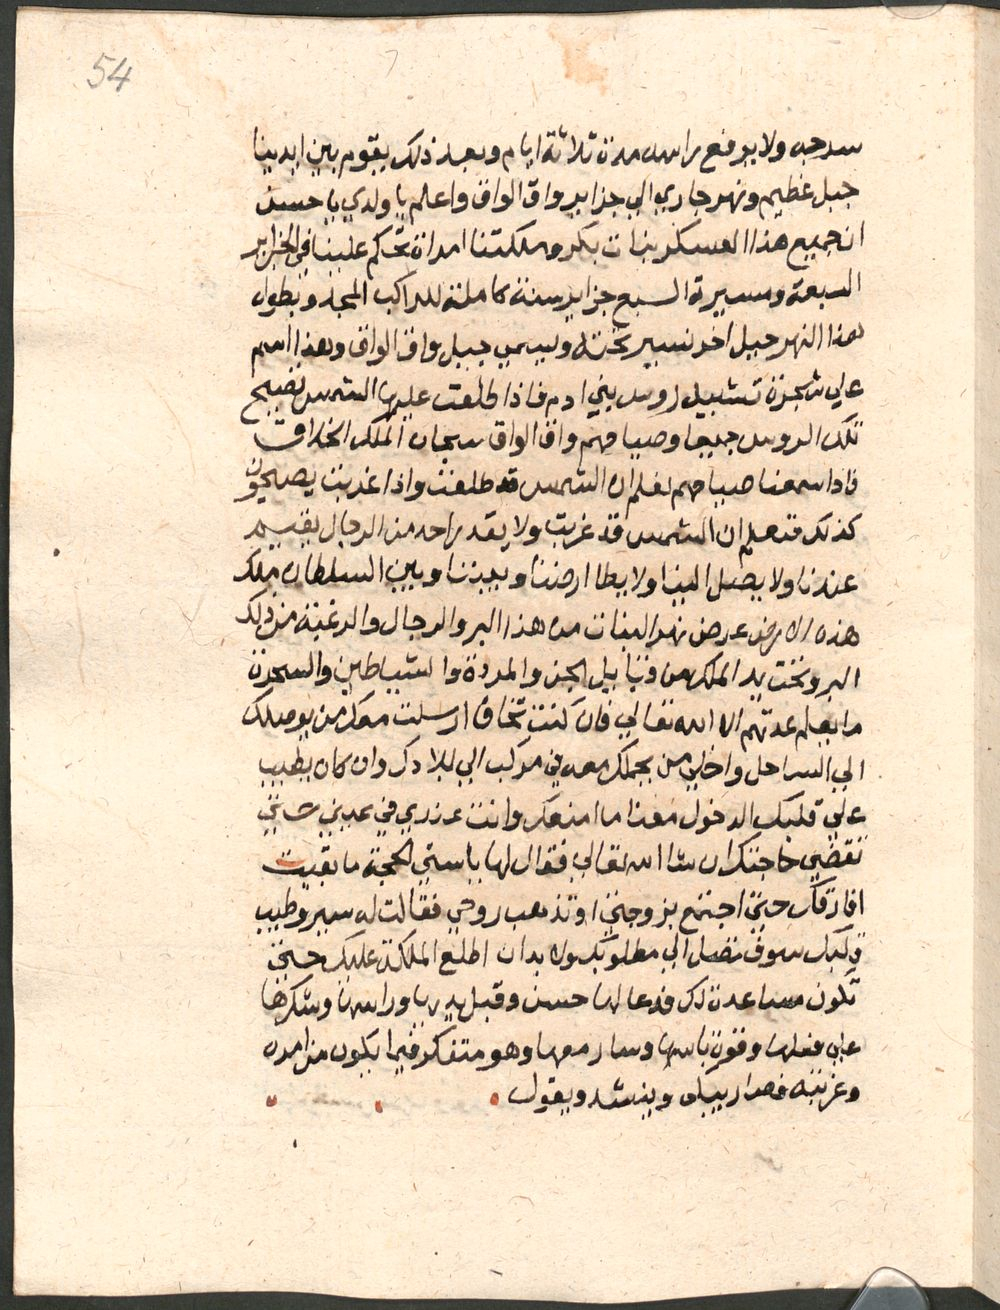 54
سرجه ولا يرفع راسه مدة ثلاثة ايام وبعد ذلك يقوم بين ايدينا
جبل عظيم ونهر جاري الي جزاير واق الواق واعلم يا ولدي يا حسن
ان جميع هذا العسكر بنات بكر وملكتنا امراة تحكم علينا في الجزاير
السبعة ومسيرة السبع جزاير سنة كاملة للراكب المجد وبطول
هذا النهر جبل اخر نسير تحته ويسمي جبل واق الواق وهذا اسم
علي شجرة تشبيل روس بني ادم فاذا طلعت عليها الشمس تصيح
تلك الروس جميعا وصياحهم واق الواق سبحان الملك الخلاق
فاذا سمعنا صياحهم نعلم ان الشمس قد طلعت واذا غربت يصيحون
كذلك فنعلم ان الشمس قد غربت ولا يقدر احد من الرجال يقيم
عندنا ولا يصل الينا ولا يطا ارضنا وبيننا وبين السلطان ملك
هذه الارض عرض نهر البنات من هذا البر والرجال والرغبة من ذلك
البر وتحت يد الملك من قبايل الجن والمردة والشياطين والسحرة
ما يعلم عدتهم الا الله تعالي فان كنت تخاف ارسلت معك من يوصلك
الي الساحل واخلي من يحملك معه في مركب الي بلادك وان كان يطيب
علي قلبك الدخول معنا ما امنعك وانت عندي في عيني حتي
نقضي حاجتك ان شا الله تعالي فقال لها يا ستي الحجة ما بقيت
افارقك حتي اجتمع بزوجتي او تذهب روحي فقالت له سير وطيب
قلبك سوف تصل الي مطلوبك ولا بد ان اطلع الملكة عليك حتي
تكون مساعدة لك فدعا لها حسن وقبل يديها وراسها وشكرها
علي فعلها وقوة باسها وسار معها وهو متفكر فيما يكون من امره
وغربته فصار يبكي وينشد ويقول